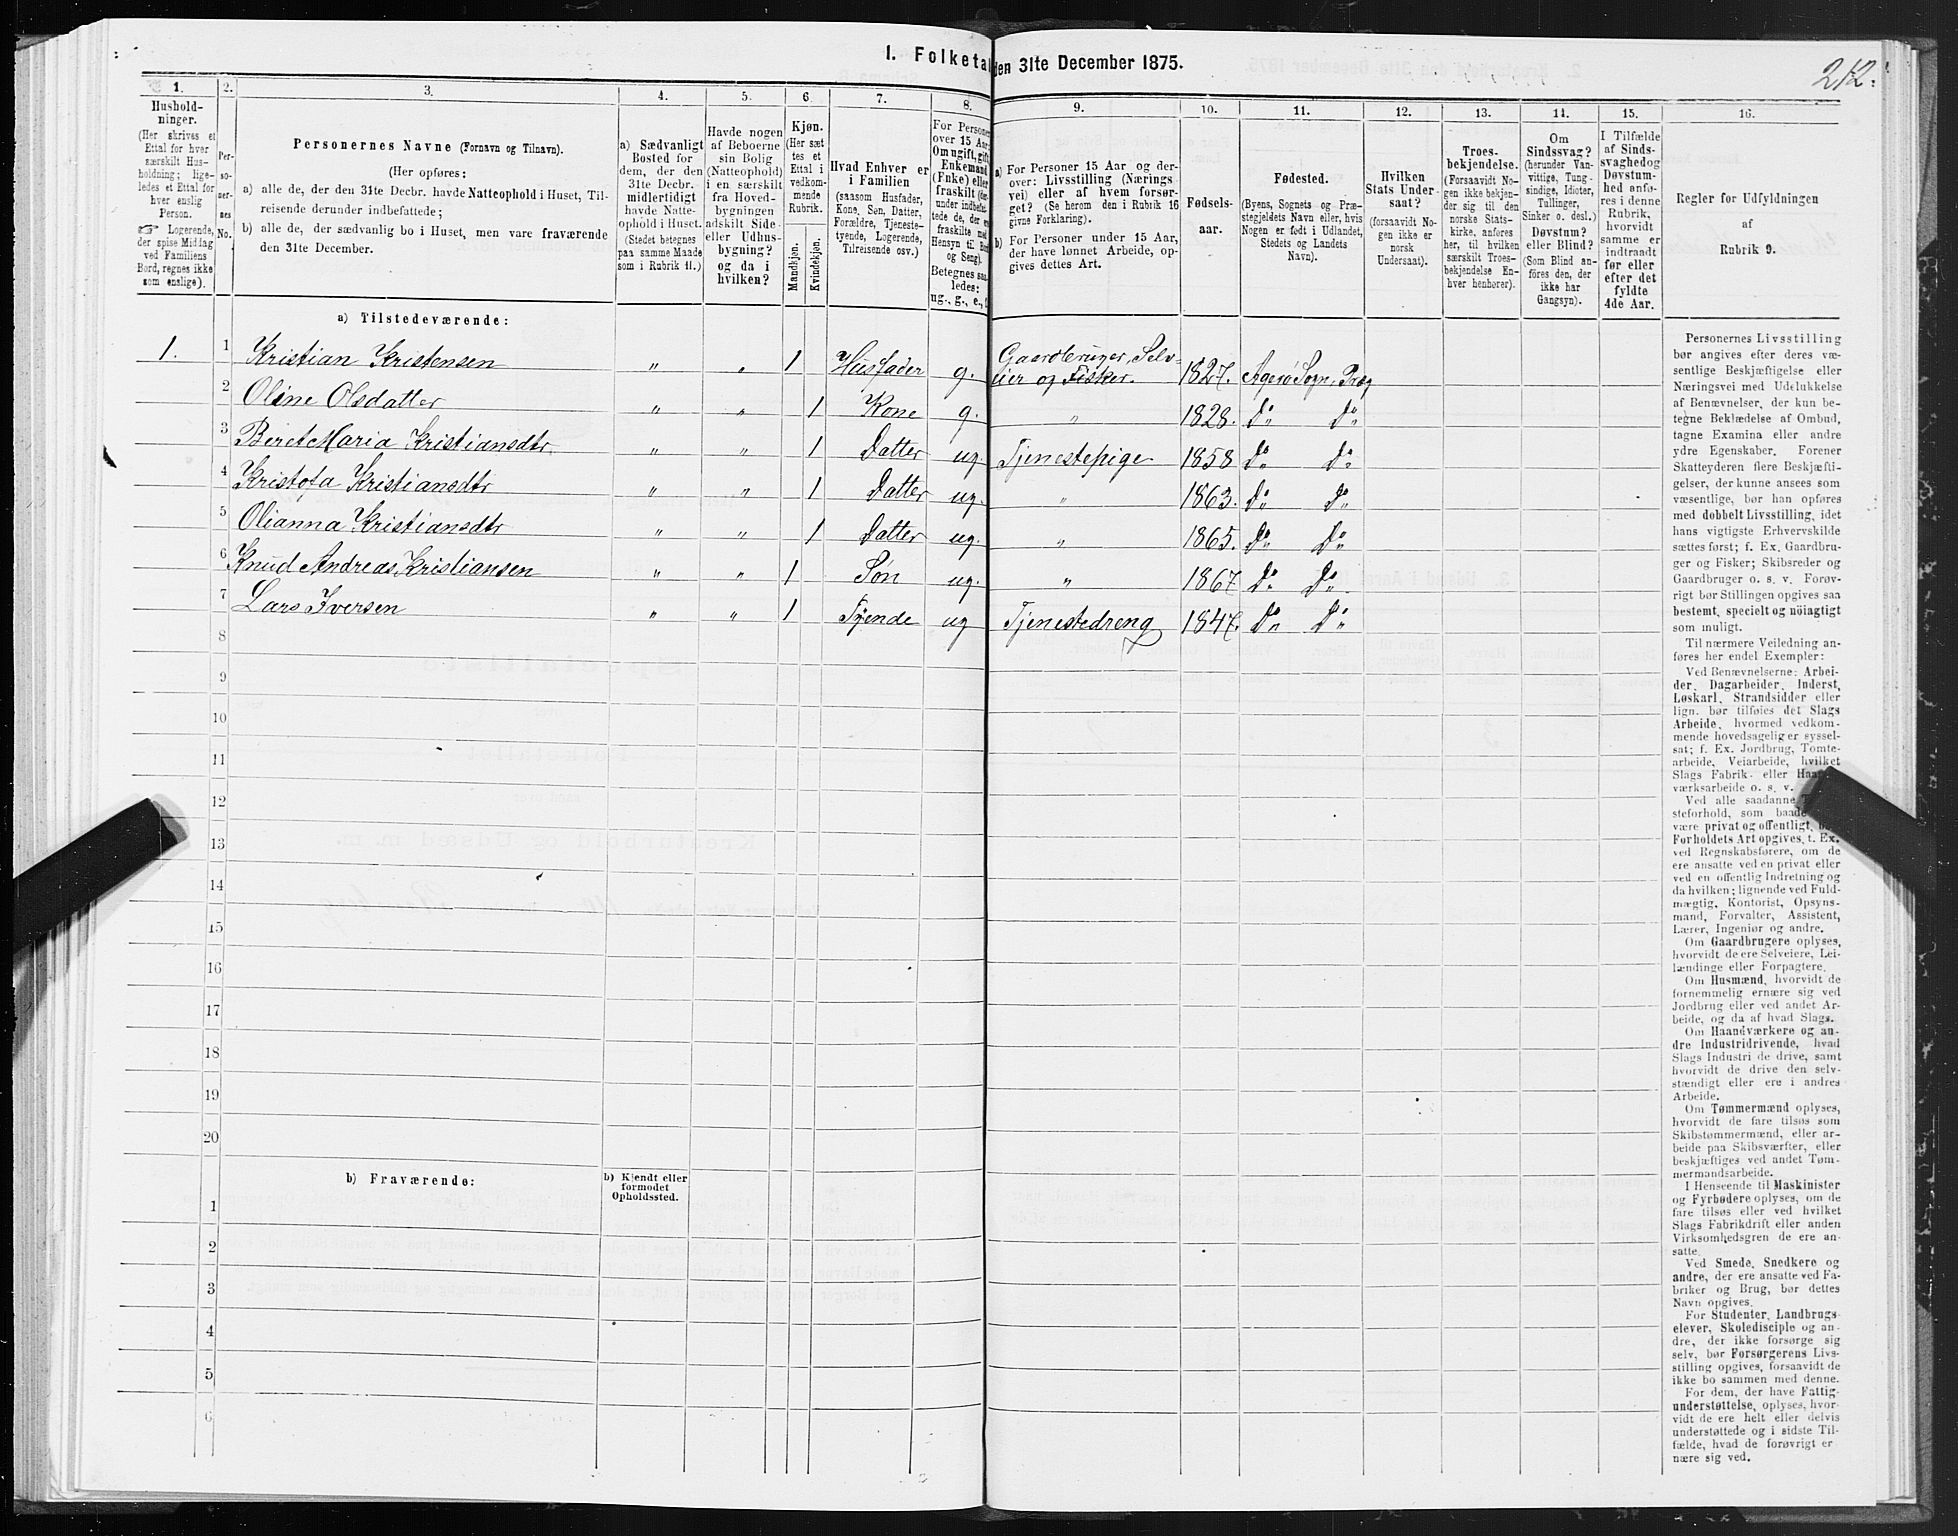 212.
I. Folketal den 31te December 1875.
1.
Hushold-
ninger.
(Her skrives et
Ettal for hver
særskilt Hus-
holdning; lige-
ledes et Ettal for
hver enslig
Person.
☞ Logerende,
der spise Middag
ved Familiens
Bord, regnes ikke
som enslige).
2.
Per-
so-
ner-
nes
No.
3.
Personernes Navne (Fornavn og Tilnavn).
(Her opføres:
a) alle de, der den 31te Decbr. havde Natteophold i Huset, Til-
reisende derunder indbefattede;
b) alle de, der sædvanlig bo i Huset, men vare fraværende
den 31te December.
4.
a) Sædvanligt
Bosted for
dem, der den
31te Decbr.
midlertidigt
havde Natte-
ophold i Huset.
(Stedet betegnes
paa samme Maade
som i Rubrik 11.)
5.
Havde nogen
af Beboerne
sin Bolig
(Natteophold)
i en særskilt
fra Hoved-
bygningen
adskilt Side-
eller Udhus-
bygning?
og da i
hvilken?
6.
Kjøn.
(Her sæt
tes et
Ettal i
vedkom-
mende
Rubrik.
Mandkjøn.
Kvindekjøn.
7.
Hvad Enhver er
i Familien
(saasom Husfader,
Kone, Søn, Datter,
Forældre, Tjeneste-
tyende, Logerende,
Tilreisende osv.)
8.
For Personer
over 15 Aar:
Om ugift, gift,
Enkemand
(Enke) eller
fraskilt
Hensyn til Bord
og Seng).
Betegnes saa-
ledes:
ug., g., e.,
9.
a) For Personer 15 Aar og der-
over: Livsstilling (Nærings
vei) eller af hvem forsør-
get? (Se herom den i Rubrik 16
givne Forklaring).
b) For Personer under 15 Aar,
der have lønnet Arbeide, op-
gives dettes Art.
10.
Fødsels-
aar.
11.
Fødested.
(Byens, Sognets og Præ-
stegjeldets Navn eller, hvis
Nogen er født i Udlandet,
Stedets og Landets
Navn).
12.
Hvilken
Stats Under-
saat?
(forsaavidt No-
gen ikke er
norsk
Undersaat).
13.
Troes-
bekjendelse.
(Forsaavidt No-
gen ikke bekjen-
der sig til den
norske Stats-
kirke, anføres
her, til hvilken
særskilt Troes-
bekjendelse En-
hver henhører).
14.
Om
Sindssvag?
(herunder Van-
vittige, Tung-
sindige, Idioter,
Tullinger,
Sinker o. desl.)
Døvstum?
eller Blind?
(Som Blind an-
føres den, der
ikke har
Gangsyn).
15.
I Tilfælde
af Sinds-
svaghed og
Døvstum-
hed anfø-
res i denne
Rubrik,
hvorvidt
samme er
indtraadt
før eller
efter det
fyldte
4de Aar.
16.
Regler for Udfyldningen
af
Rubrik 9.
a) Tilstedeværende:
1. 1 Kristian Kristensen " " 1 Husfader g. Gaardbruger, Selv-
eier og Fisker. 1827. Agerø Sogn, Præg
2 Oline Olsdatter " " 1 Kone g. " 1828. Do Do
3 Beret Maria Kristiansdtr. " " 1 Datter ug. Tjenestepige 1858 Do Do
4 Kristofa Kristiansdtr " " 1 Datter ug. " 1863. Do Do
5 Olianna Kristiansdtr " " 1 Datter ug. " 1865. Do Do
6 Knud Andreas Kristiansen " " 1 Søn ug. " 1867 Do Do
7 Lars Iversen " " 1 Tyende ug Tjenestedreng 1847. Do Do
8
9
10
11
12
13
14
15
16
17
18
19
20
b) Fraværende:
b) Kjendt eller
formodet
Opholdssted.
1
2
3
4
5
6
Personernes Livsstilling
bør angives efter deres væ-
sentlige Beskjæftigelse eller
Næringsvei med Udelukkelse
af Benævnelser, der kun be-
tegne Beklædelse af Ombud,
tagne Examina eller andre
ydre Egenskaber. Forener
Skatteyderen flere Beskjæfti-
gelser, der kunne ansees som
væsentlige, bør han opføres
med dobbelt Livsstilling, idet
hans vigtigste Erhvervskilde
sættes først; f. Ex. Gaardbru-
ger og Fisker; Skibsreder og
Gaardbruger o. s. v. Forøv-
rigt bør Stillingen opgives saa
bestemt, specielt og nöiagtigt
som muligt.
Til nærmere Veiledning an-
føres her endel Exempler:
Ved Benævnelserne: Arbei-
der, Dagarbeider, Inderst,
Løskarl, Strandsidder eller
lign. bør tilføies det Slags
Arbeide, hvormed vedkom-
mende hovedsagelig er syssel-
sat; f. Ex. Jordbrug, Tomte-
arbeide, Veiarbeide, hvilket
Slags Fabrik- eller
værksarbeide o. s. v.
Ved alle saadanne
steforhold, som baade
være privat og offentligt,
Forholdets Art opgives, t. Ex.
ved Regnskabsførere, om de
ere ansatte ved en privat eller
ved en offentlig Indretning og
da hvilken; lignende ved Fuld-
mægtig, Kontorist, Opsyns-
mand, Forvalter, Assistent,
Lærer, Ingeniør og andre.
Om Gaardbrugere oplyses,
hvorvidt de ere Selveiere, Lei-
lændinge eller Forpagtere.
Om Husmænd, hvorvidt de
fornemmelig ernære sig ved
Jordbrug eller ved andet Ar-
beide, og da af hvad Slags.
Om Haandværkere og an-
dre Industridrivende, hvad
Slags Industri de drive, samt
hvorvidt de drive den selv-
stændigt eller ere i andres
Arbeide.
Om Tømmermænd oplyses,
hvorvidt de fare tilsøs som
Skibstømmermænd, eller ar-
beide paa Skibsværfter, eller
beskjæftiges ved andet Tøm-
mermandsarbeide.
I Henseende til Maskinister
og Fyrbødere oplyses, om de
fare tilsøs eller ved hvilket
Slags Fabrikdrift eller anden
Virksomhedsgren de ere an-
satte.
Ved Smede, Snedkere og
andre, der ere ansatte ved Fa-
briker og Brug, bør dettes
Navn opgives.
For Studenter, Landbrugs-
elever, Skoledisciple og an-
dre, der ikke forsørge sig
selv, bør Forsørgerens Livs-
stilling opgives, forsaavidt de
ikke bo sammen med denne.
For dem, der have Fattig-
understøttelse, oplyses, hvor-
vidt de ere helt eller delvis
understøttede og i sidste Til-
fælde, hvad de forøvrigt er
nære sig ved.